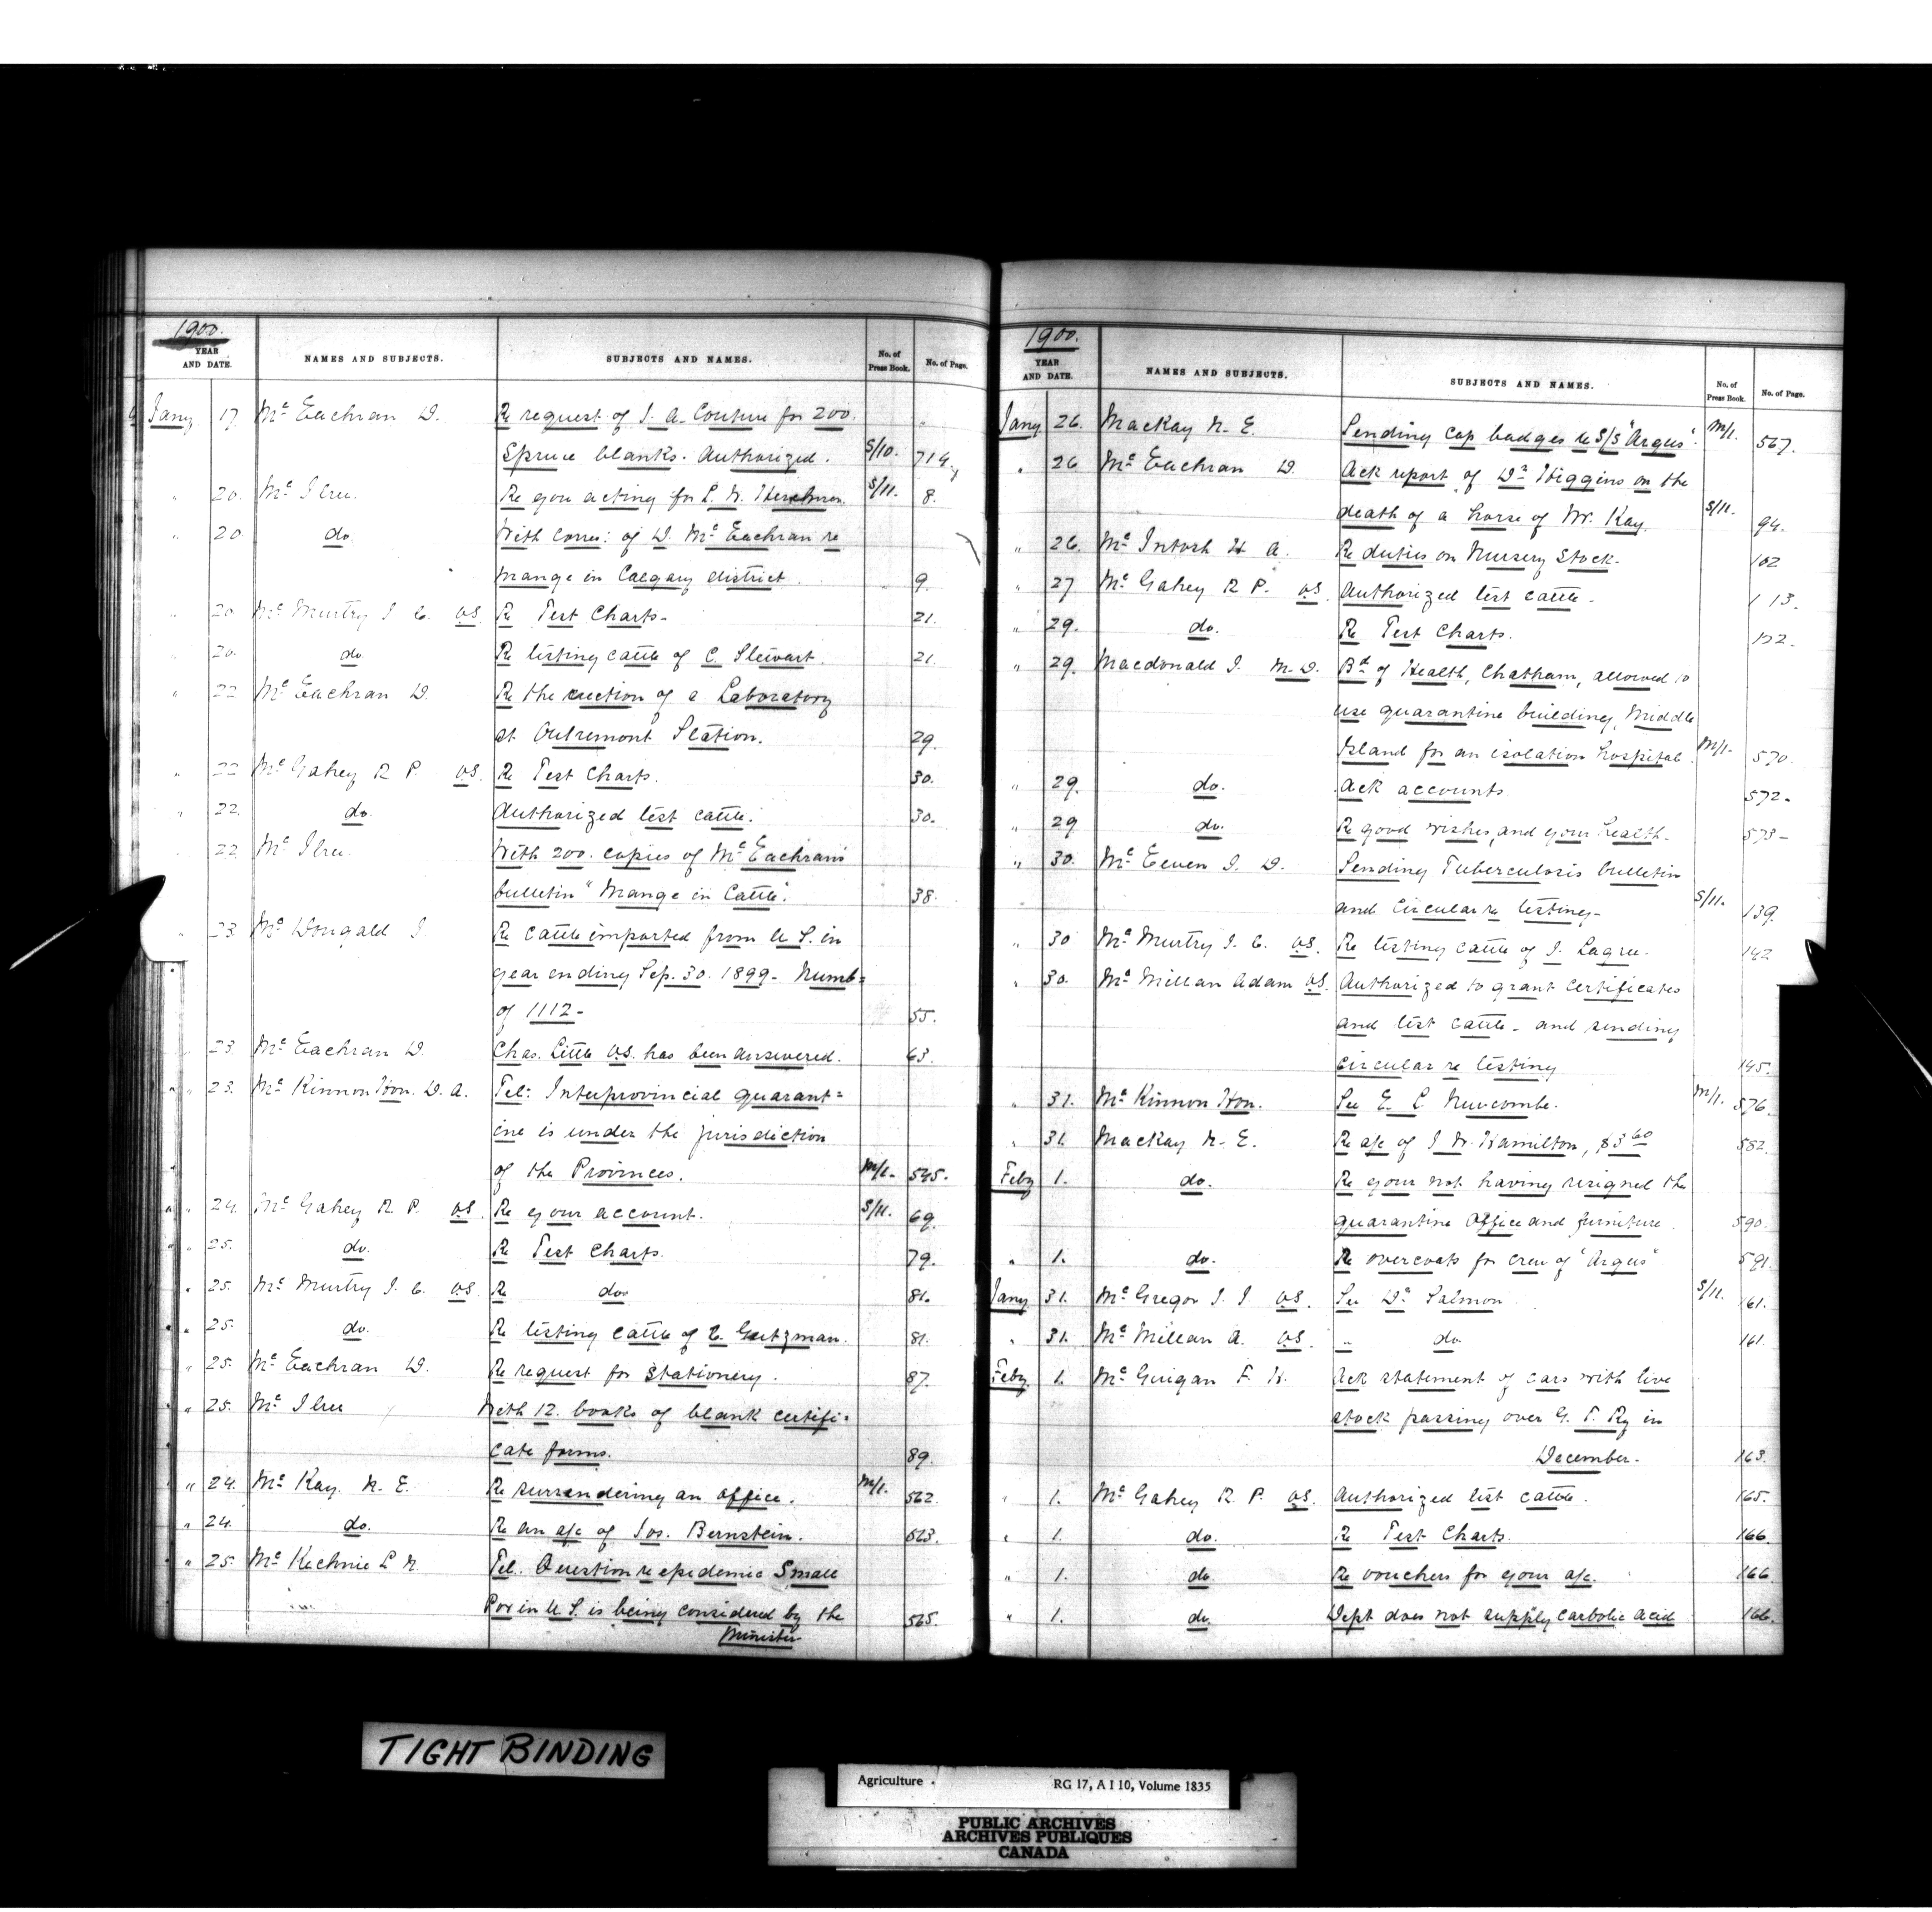 1900.
YEAR AND DATE. NAMES AND SUBJECTS. SUBJECTS AND NAMES. No. of Press Book. No. of Page.
Jany 17. Mc Eachran D. Re request of J. A. Couture for 200
Spruce blanks. Authorized. S/10. 714.
" 20. Mc Ilree. Re you acting for L. W. S/11. 8.
" 20 do. With corres: of D. Mc Eachran re
mange in Calgary district. 9.
" 20 Mc Murtry J. C. V.S. Re Test Charts. 21.
" 20. do. Re testing cattle of C. Stewart. 21.
" 22 Mc Eachran D. Re the erection of a Laboratory
at Outremont Station. 29.
" 22 Mc Gahey R P. V.S. Re Test Charts. 30.
" 22. do. Authorized test cattle. 30.
" 22 Mc Ilree. With 200. copies of Mc Eachran's
bulletin "Mange in Cattle". 38.
" 23. Mc Dougald J. Re cattle imported from U S. in
year ending Sep. 30. 1899. Numb=
of 1112 - 55.
" 23. Mc Eachran D. Chas. Little V.S. has been answered. 63.
" 23. Mc Kinnon Hon. D. A. Tel: Interprovincial quarant=
ine is under the jurisdiction
of the Provinces. M/1. 545.
" 24. Mc Gahey R. P. V.S. Re your account. S/11. 69.
" 25. do. Re Test Charts. 79.
" 25. Mc Murtry J. C. V.S. Re do. 81.
" 25. do. Re testing cattle of Gutzman. 81.
" 25. Mc Eachran D. Re request for Stationery. 87.
" 25. Mc Ilree With 12. books of blank certifi=
cate forms. 89.
" 24. Mc Kay. N. E. Re surrendering an office. M/1. 562.
" 24. do. Re an a/c of Jos. Bernstein. 563.
" 25. Mc Kechnie L N. Tel. Question re epidemic Small
Pox in U.S. is being considered by the 565.
Minister
1900.
YEAR AND DATE. NAMES AND SUBJECTS. SUBJECTS AND NAMES. No. of Press Book. No. of Page.
Jany 26. MacKay N. E. Sending Cap badges re S/S "Argus". M/1. 567.
" 26 Mc Eachran D. Ack report of Dr Higgins on the
death of a horse of W. Kay. S/11. 94.
" 26. Mc Intosh H A. Re duties on Nursery Stock. 102
" 27 Mc Gahey R P. V.S. Authorized test cattle. 113.
" 29. do. Re Test Charts. 122.
" 29. Macdonald J. M.D. Bd of Health, Chatham, allowed to
use quarantine building, Middle
Island for an isolation hospital. M/1. 570.
" 29. do. Ack accounts 572.
" 29 do. Re good wishes, and your health. 573-
" 30. Mc Ewen J. D. Sending Tuberculosis bulletin
and Circular re testing. S/11. 139.
" 30 Mc Murtry J. C. V.S. Re testing cattle of J. Lagree. 142
" 30. Mc Millan Adam V.S. Authorized to grant certificates
and test cattle - and sending
circular re testing 145.
" 31. Mc Kinnon Hon. See E. L. Newcombe. M/1. 576.
" 31. MacKay N. E. Re a/c of J W. Hamilton, $3 60 582.
Feby 1. do. Re your not having resigned the
quarantine Office and furniture. 590.
" 1. do. Re overcoats for crew of "Argus" 591.
Jany 31. Mc Gregor J. J. V.S. See Dr Salmon S/11. 161.
" 31. Mc Millan A. V.S. " do. 161.
Feby 1. Mc Guigan F. H. Ack statement of cars with live
stock passing over G. T. Ry in
December. 163.
" 1. Mc Gahey R. P. V.S. Authorized test cattle. 165.
" 1. do. Re Test Charts. 166.
" 1. do. Re vouchers for your a/c. 166.
" 1. do. Dept does not supply carbolic acid 166.
TIGHT BINDING
Agriculture RG 17, A I 10, Volume 1835
PUBLIC ARCHIVES
ARCHIVES PUBLIQUES
CANADA